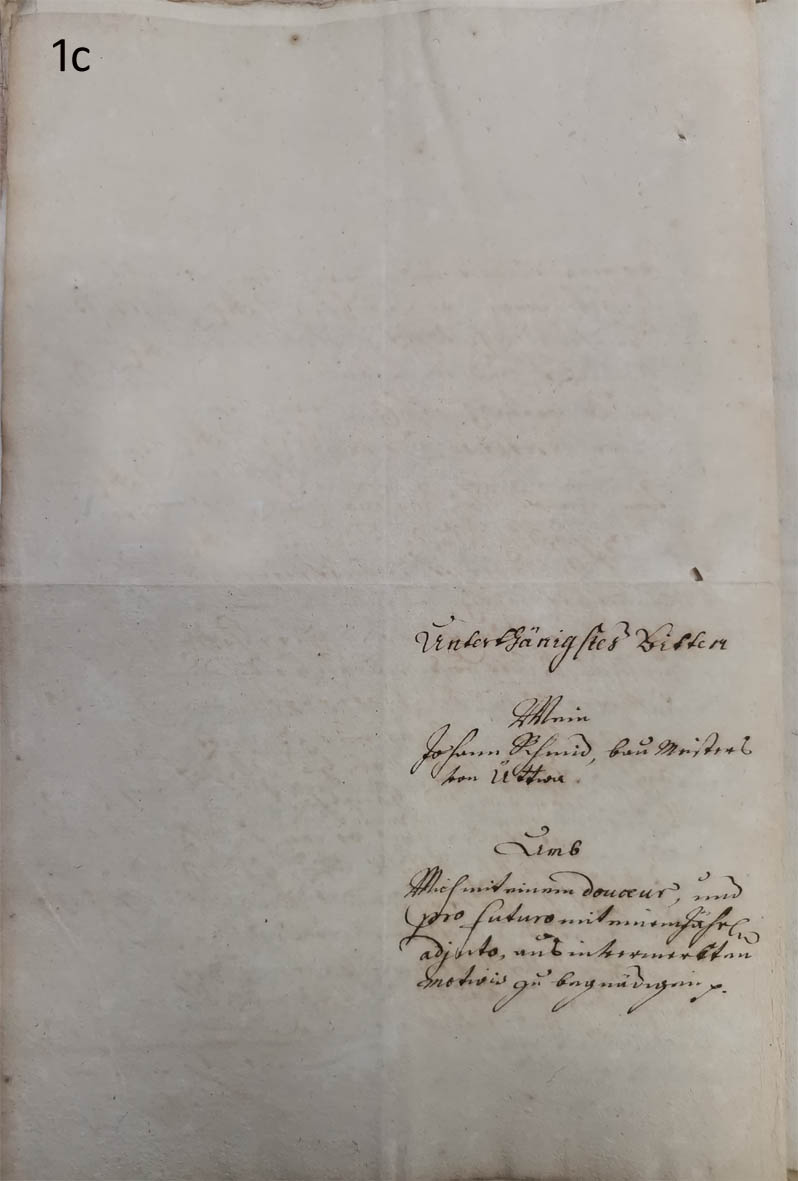 1c
Unterthänigstes Bitten
Mein
Johann Schmid, bau Meisters
von Üttwa
Umb
Mich mit einem douceur, und
pro futuro mit einem Jährl:
adjuto, aus intermerckten
motivis zu begnädigen p.